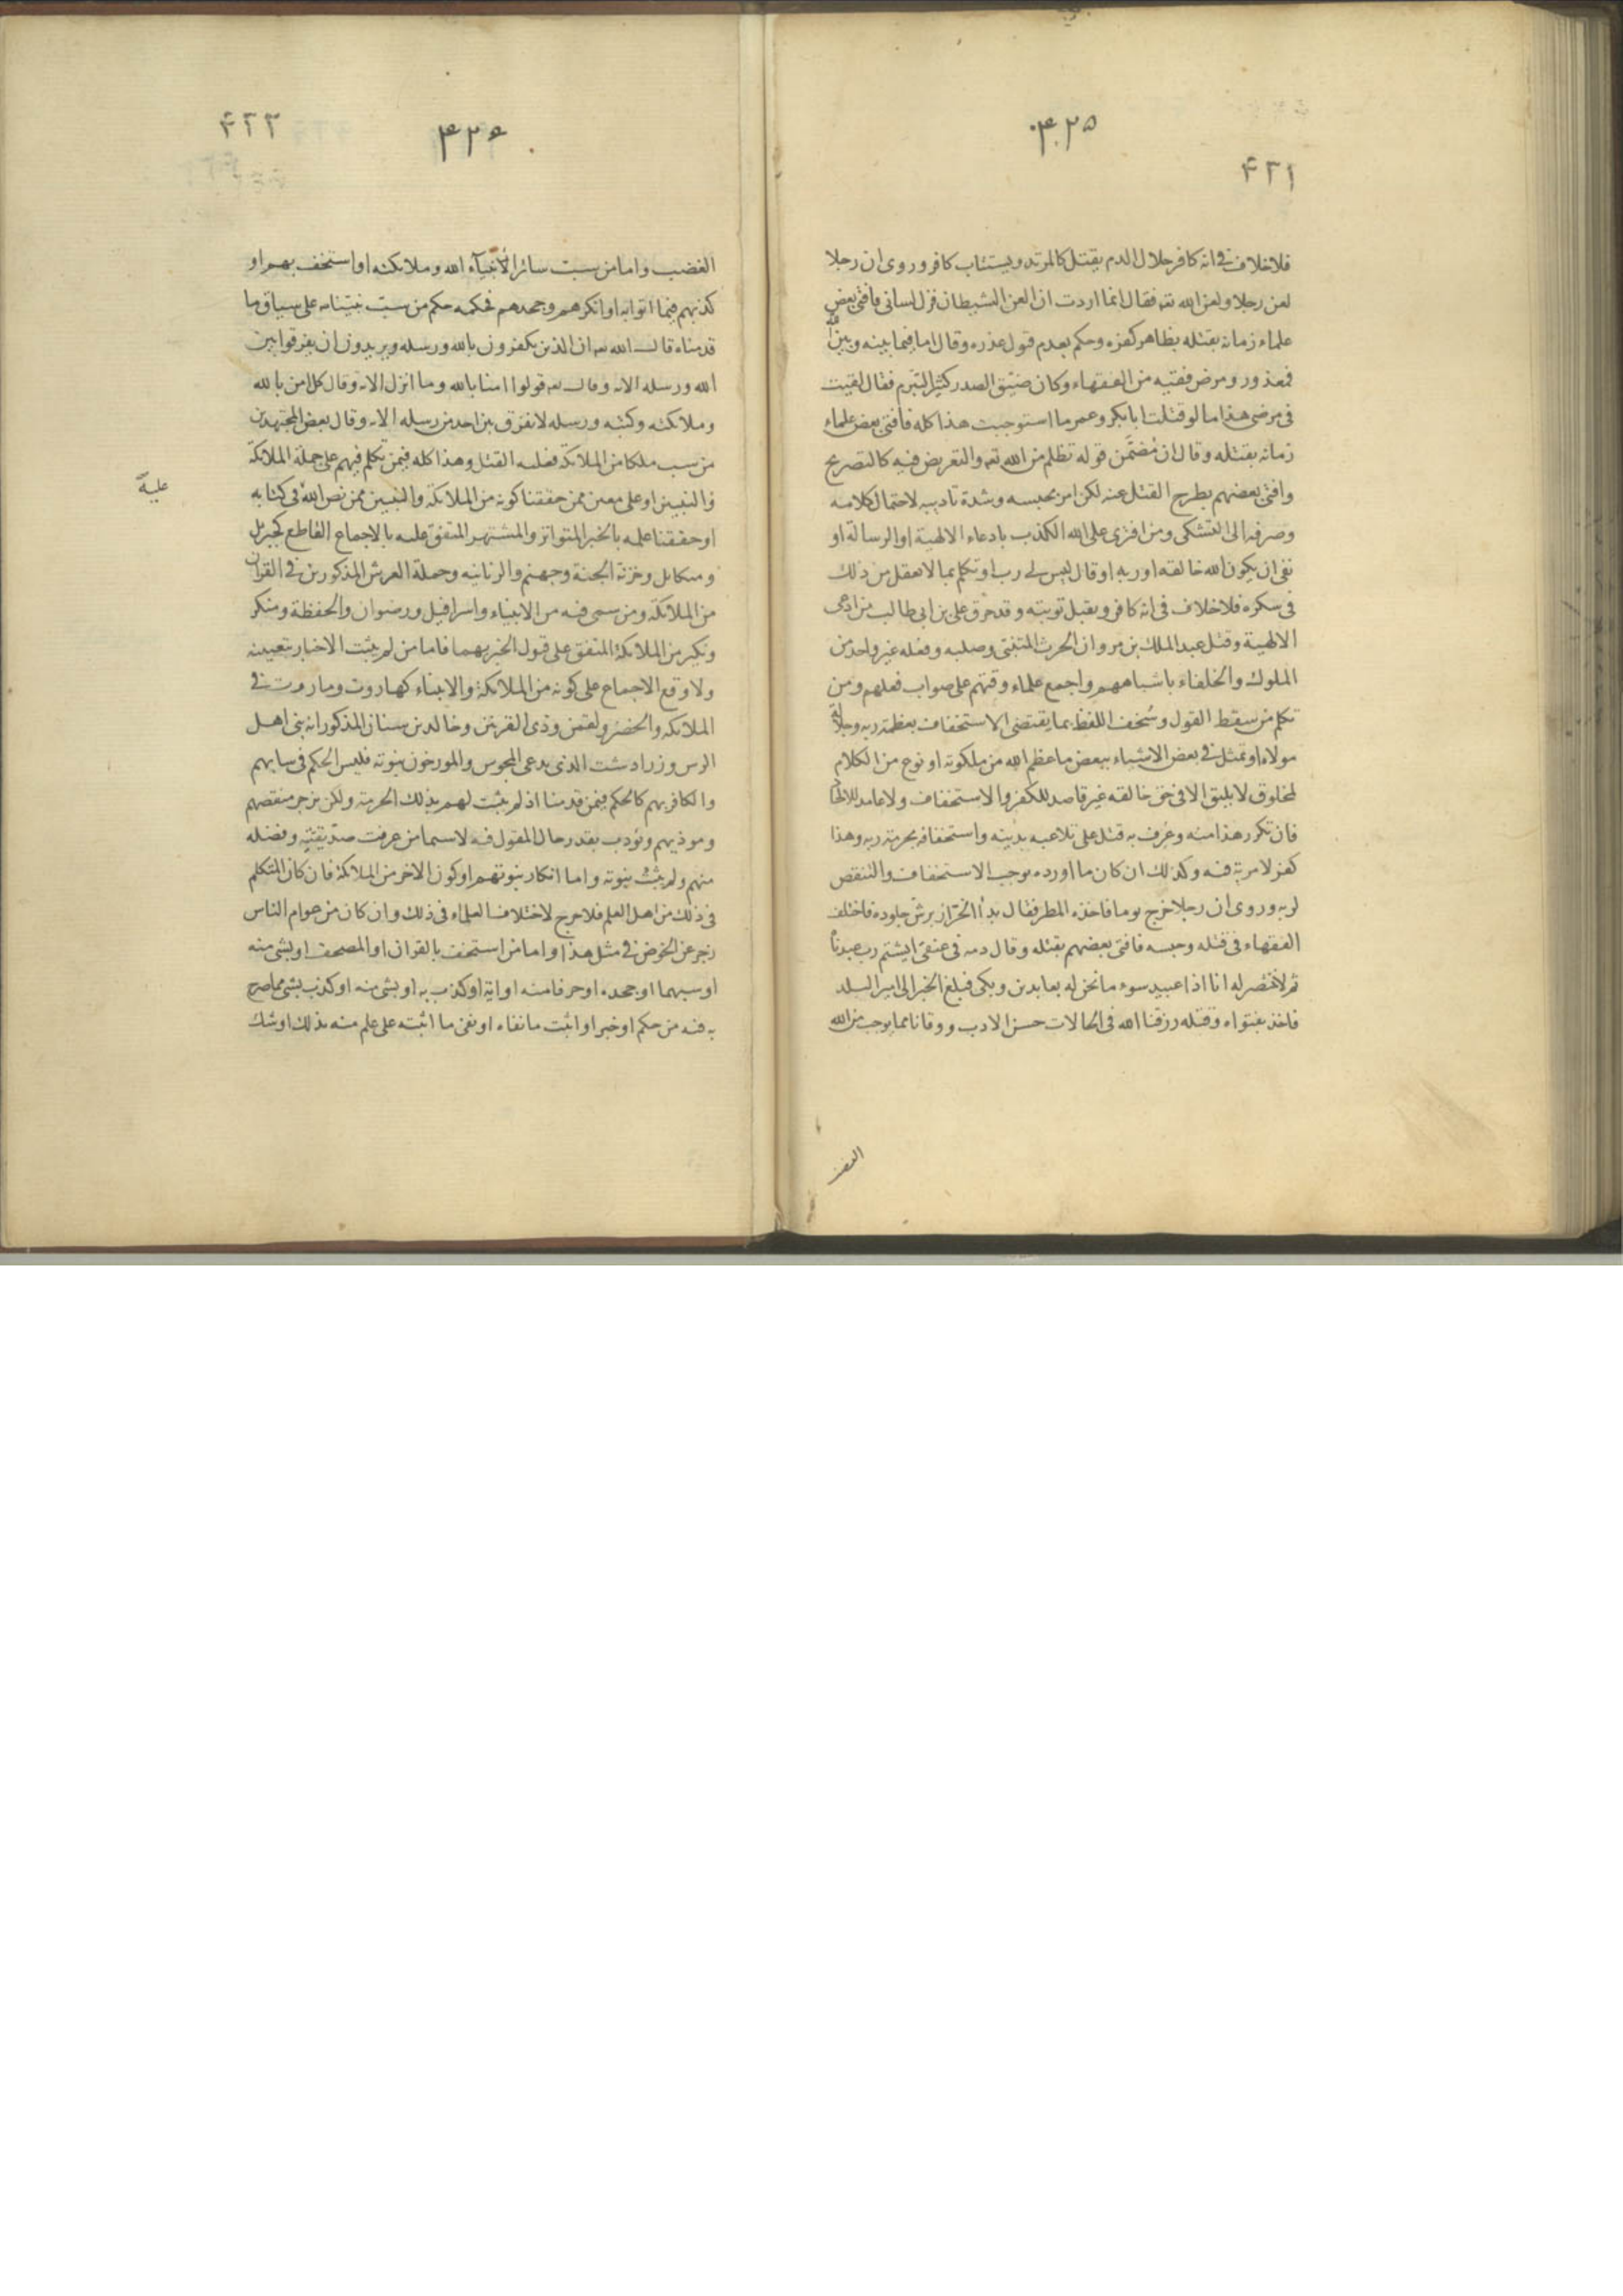 ۴۲۵
۴۲۱
فلا خلاف فی انه کافر حلال الدم یقتل کالمرتد ویستتاب کافر وروی ان رجلا
لعن رجلا ولعن الله تعه فقال انما اردت ان العن الشیطان فزل لسانی فافتی بعض
علماء زمانه بقتله بظاهر کفره وحکم بعدم قبول عذره وقال اما فیما بینه وبین الله
فمعذور ومرض فقیه من الفقهاء وکان ضیق الصدر کثیر التبرم فقال لقیت
فی مرضی هذا ما لو قتلت ابا بکر وعمر ما استوجبت هذا کله فافتی بعض علماء
زمانه بقتله وقال ان مضمن قوله تظلم من الله تعه والتعریض فیه کالتصریح
وافتی بعضهم بطرح القتل عنه لکن امر بحبسه وشدة تادیبه لاحتمال کلامه
وصرفه الی التشکی ومن افتری علی الله الکذب بادعاء الالهیة او الرسالة او
نفی ان یکون الله خالقه او ربه او قال لیس لی رب او تکلم بما لا یعقل من ذلک
فی سکره فلا خلاف فی انه کافر ویقبل توبته وقد حرق علی بن ابی طالب من ادعی
الالهیة وقتل عبد الملک بن مروان الحرث المتنبی وصلبه وفعله غیر واحد من
الملوک والخلفاء باشباههم واجمع علماء وقتهم علی صواب فعلهم ومن
تکلم من سقط القول وسخف اللفظ بما یقتضی الاستخفاف بعظمة ربه وجلالة
مولاه او تمثل فی بعض الاشیاء ببعض ما عظم الله من ملکوته او نوع من الکلام
لمخلوق لا یلیق الا فی حق خالقه غیر قاصد للکفر والاستخفاف ولا عامد للالحاد
فان تکرر هذا منه وعرف به قتل علی تلاعبه بدینه واستخفافه بحرمة ربه وهذا
کفر لا مریة فیه وکذلک ان کان ما اورده یوجب الاستخفاف والتنقص
لربه وروی ان رجلا خرج یوما فاخذه المطر فقال بدأ الخراز یرش جلوده فاختلف
الفقهاء فی قتله وحبسه فافتی بعضهم بقتله وقال دمه فی عنقی ایشتم رب عبدناه
ثم لا ننتصر له انا اذا عبید سوء ما نحن له بعابدین وبکی فبلغ الخبر الی امیر البلد
فاخذ بفتواه وقتله رزقنا الله فی الحالات حسن الادب ووقانا مما یوجب من الله
الغضب
۴۲۶
۴۲۲
الغضب واما من سب سائر الأنبیآء الله وملائکته او استخف بهم او
کذبهم فیما اتوا به او انکرهم وجحدهم فحکمه حکم من سب نبینا علی سیاق ما
قدمناه قال الله تعه ان الذین یکفرون بالله ورسله ویریدون ان یفرقوا بین
الله ورسله الایه وقال تعه قولوا امنا بالله وما انزل الایه وقال کل امن بالله
وملائکته وکتبه ورسله لا نفرق بین احد من رسله الایه وقال بعض المجتهدین
من سب ملکا من الملائکة فعلیه القتل وهذا کله فیمن تکلم فیهم علی جملة الملائکة
والنبیین او علی معین ممن حققنا کونه من الملائکة والنبیین ممن نص الله فی کتابه
علیه
او حققنا علمه بالخبر المتواتر والمشتهر المتفق علیه بالاجماع القاطع کجبریل
ومیکائل وخزنة الجنة وجهنم والزبانیه وحملة العرش المذکورین فی القران
من الملائکة ومن سمی فیه من الانبیاء واسرافیل ورضوان والحفظة ومنکر
ونکیر من الملائکة المتفق علی قبول الخبر بهما فاما من لم یثبت الاخبار بتعیینه
ولا وقع الاجماع علی کونه من الملائکة والانبیاء کهاروت وماروت فی
الملائکه والخضر ولقمن وذی القرنین وخالد بن سنان المذکور انه نبی اهل
الرس وزرادشت الذی یدعی المجوس والمورخون نبوته فلیس الحکم فی سابهم
والکافر بهم کالحکم فیمن قدمنا اذ لم یثبت لهم بذلک الحرمة ولکن یزجر منقصهم
وموذیهم ویؤدب بقدر حال المقول فیه لا سیما من عرفت صدیقیته وفضله
منهم ولم یثبت نبوته واما انکار نبوتهم او کون الاخر من الملائکة فان کان المتکلم
فی ذلک من اهل العلم فلا حرج لاختلاف العلماء فی ذلک وان کان من عوام الناس
زجر عن الخوض فی مثل هذا واما من استخف بالقران او المصحف او بشی منه
او سبهما او جحده او حرفا منه او ایة او کذب به او بشی منه او کذب بشی مما صرح
به فیه من حکم او خبر او اثبت ما نفاه او نفی ما اثبته علی علم منه بذلک او شک